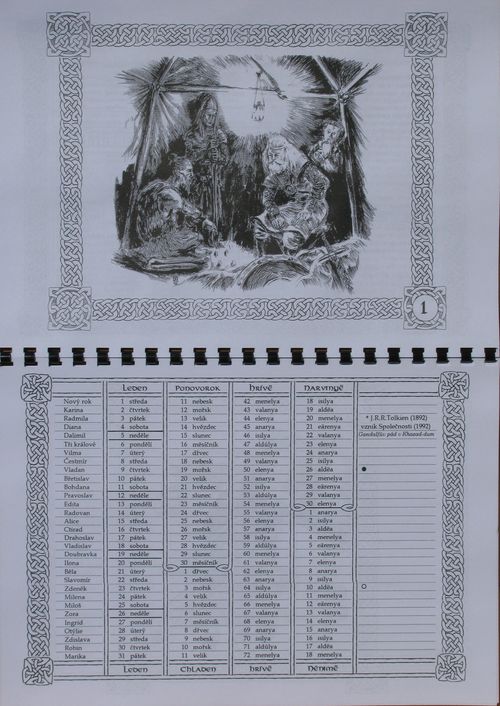 1
Leden Ponovorok Hrívë Narvinyë
Nový rok 1 středa 11 nebesk 42 menelya 18 isilya
Karina 2 čtvrtek 12 mořsk 43 valanya 19 aldëa
Radmila 3 pátek 13 velik 44 elenya 20 menelya * J.R.R.Tolkien (1892)
Diana 4 sobota 14 hvězdec 45 anarya 21 eärenya vznik Společnosti (1992)
Dalimil 5 neděle 15 slunec 46 isilya 22 valanya Gandalfův pád v Khazad-dum
Tři králové 6 pondělí 16 měsíčník 47 aldúlya 23 elenya
Vilma 7 úterý 17 dřvec 48 menelya 24 anarya
Čestmír 8 středa 18 nebesk 49 valanya 25 isilya
Vladan 9 čtvrtek 19 mořsk 50 elenya 26 aldëa
Břetislav 10 pátek 20 velik 51 anarya 27 menelya
Bohdana 11 sobota 21 hvězdec 52 isilya 28 eärenya
Pravoslav 12 neděle 22 slunec 53 aldúlya 29 valanya
Edita 13 pondělí 23 měsíčník 54 menelya 30 elenya
Radovan 14 úterý 24 dřvec 55 valanya 1 anarya
Alice 15 středa 25 nebesk 56 elenya 2 isilya
Ctirad 16 čtvrtek 26 mořsk 57 anarya 3 aldëa
Drahoslav 17 pátek 27 velik 58 isilya 4 menelya
Vladislav 18 sobota 28 hvězdec 59 aldúlya 5 eärenya
Doubravka 19 neděle 29 slunec 60 menelya 6 valanya
Ilona 20 pondělí 30 měsíčník 61 valanya 7 elenya
Běla 21 úterý 1 dřvec 62 elenya 8 anarya
Slavomír 22 středa 2 nebesk 63 anarya 9 isilya
Zdeněk 23 čtvrtek 3 mořsk 64 isilya 10 aldëa
Milena 24 pátek 4 velik 65 aldúlya 11 menelya
Miloš 25 sobota 5 hvězdec 66 menelya 12 eärenya
Zora 26 neděle 6 slunec 67 valanya 13 valanya
Ingrid 27 pondělí 7 měsíčník 68 elenya 14 elenya
Otýlie 28 úterý 8 dřvec 69 anarya 15 anarya
Zdislava 29 středa 9 nebesk 70 isilya 16 isilya
Robin 30 čtvrtek 10 mořsk 71 aldúlya 17 aldëa
Marika 31 pátek 11 velik 72 menelya 18 menelya
Leden Chladen Hrívë Nénimë